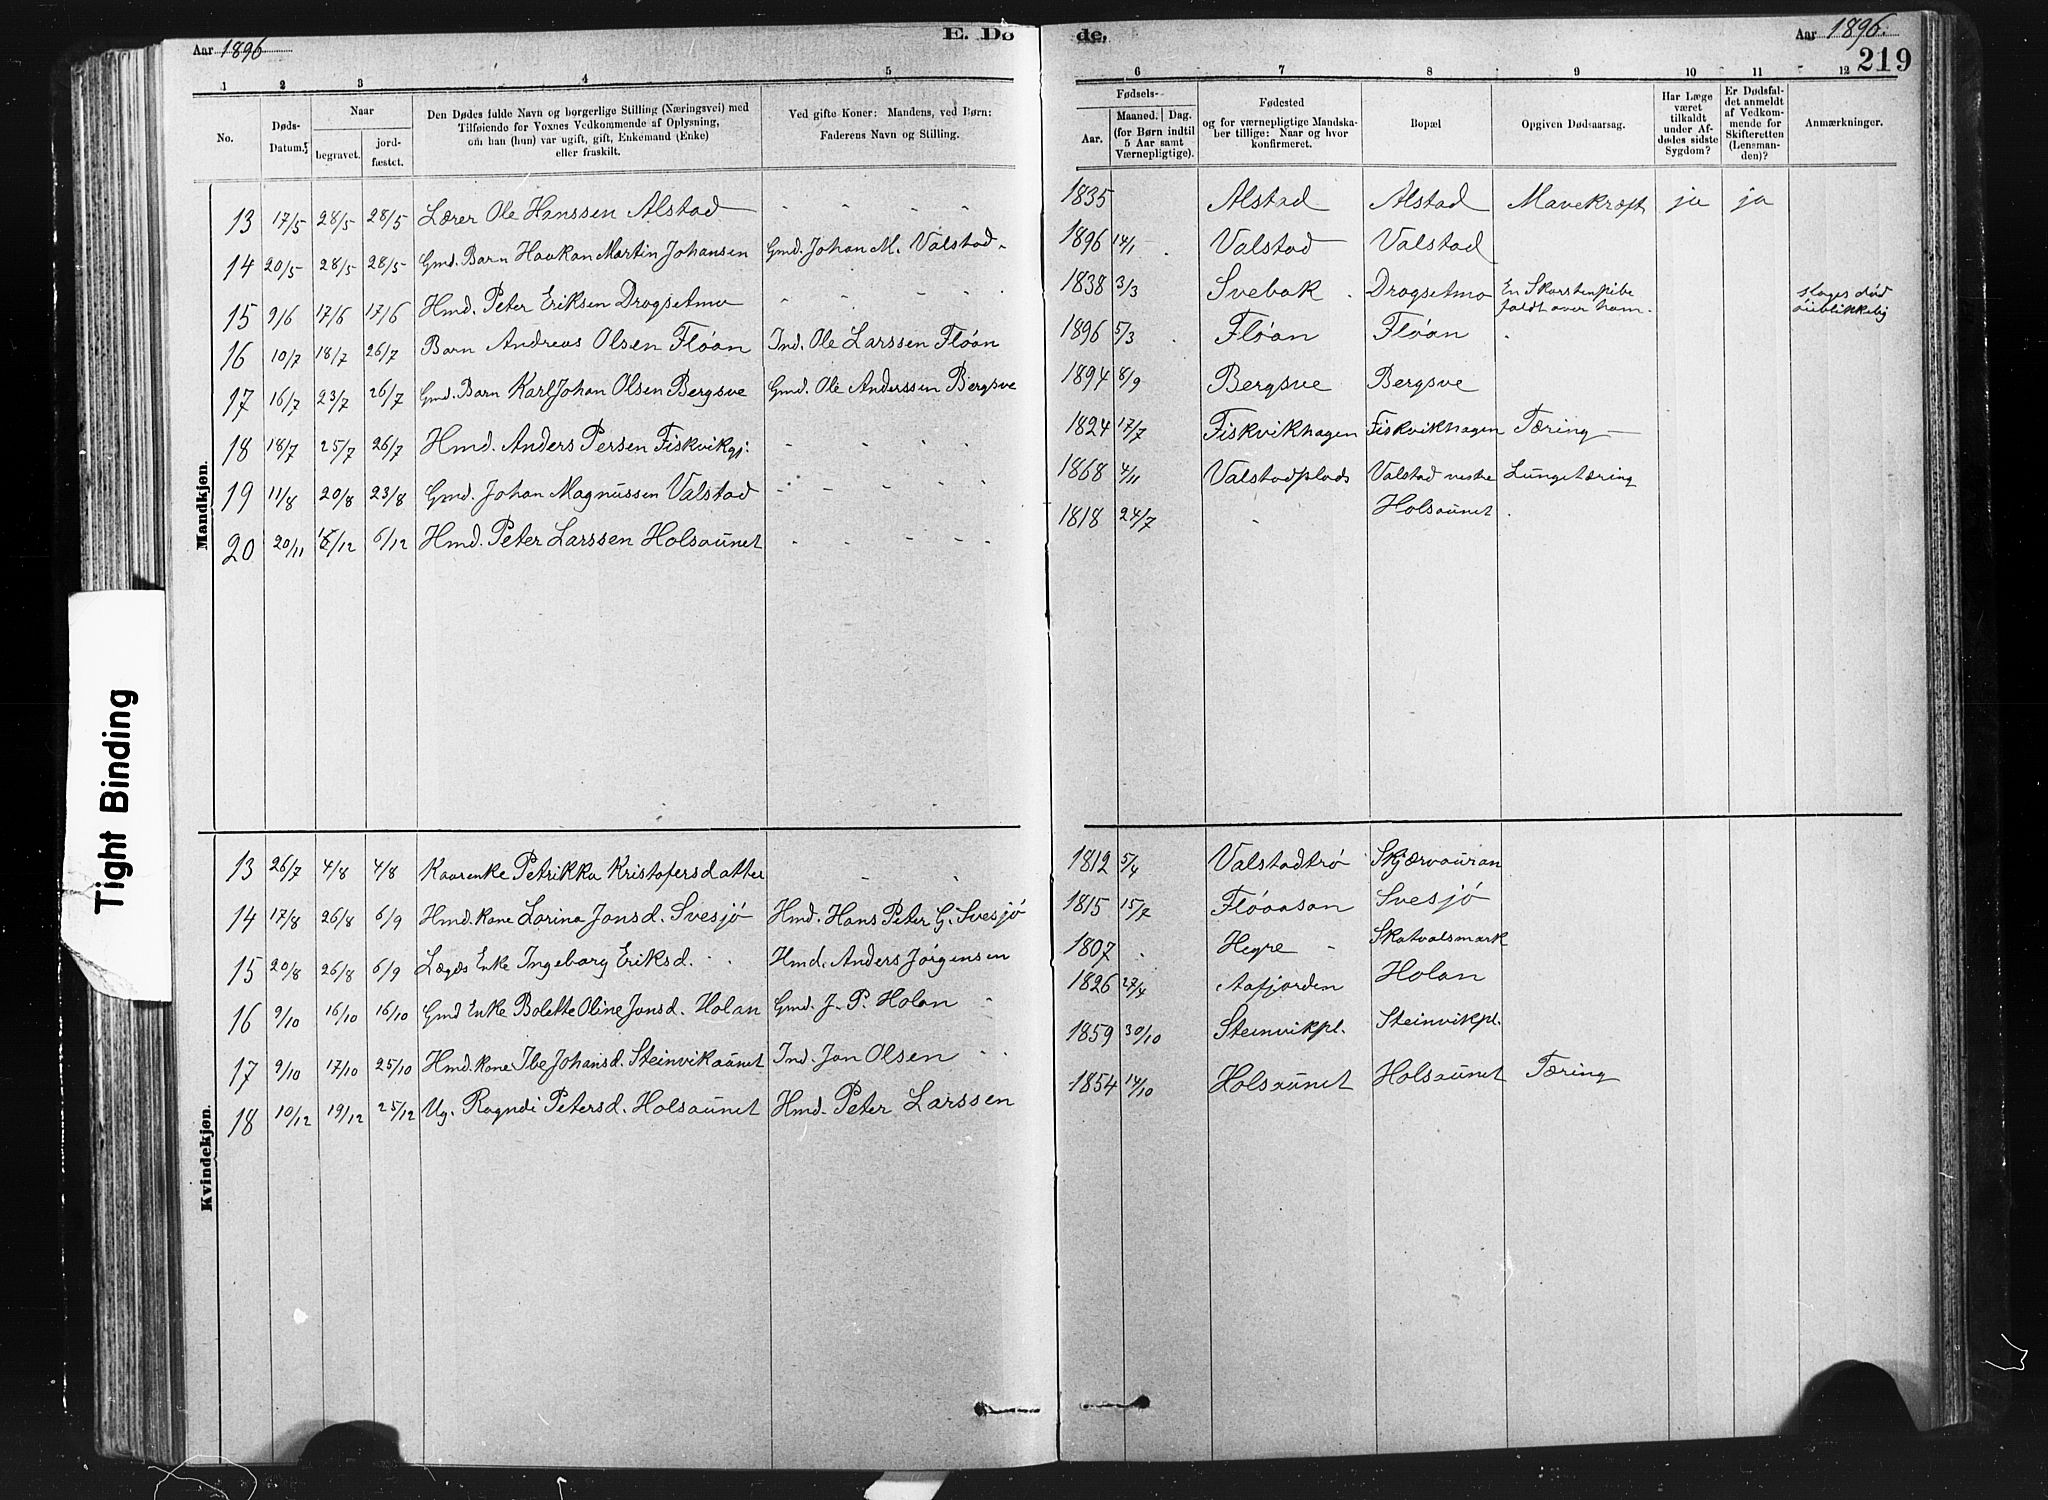 Aar 1896
E. Dø
de.
Aar 1896.
219
1 2 3 4 5 6 7 8 9 10 11 12
No.
Døds-
Datum.
Naar
begravet.
jord-
fæstet.
Den Dødes fulde Navn og borgerlige Stilling (Næringsvei) med
Tilføiende for Voxnes Vedkommende af Oplysning,
om han (hun) var ugift, gift, Enkemand (Enke)
eller fraskilt.
Ved gifte Koner: Mandens, ved Børn:
Faderens Navn og Stilling.
Fødsels-
Aar.
Maaned. Dag.
(for Børn indtil
5 Aar samt
Værnepligtige).
Fødested
og for værnepligtige Mandska-
ber tillige: Naar og hvor
konfirmeret.
Bopæl
Opgiven Dødsaarsag.
Har Læge
været
tilkaldt
under Af-
dødes sidste
Sygdom?
Er Dødsfal-
det anmeldt
af Vedkom-
mende for
Skifteretten
(Lensman-
den)?
Anmærkninger.
Mandkjøn.
13 17/5 28/5 28/5 Lærer Ole Hanssen Alstad - - - - 1835 Alstad Alstad Mavekræft ja ja
14 20/5 28/5 28/5 Gmd. Barn Haakon Martin Johansen Gmd. Johan M. Valstad. 1896 14/1 Valstad Valstad
15 9/6 17/6 17/6 Hmd. Peter Eriksen Drogsetmo - - - - 1838 3/3 Svebak Drogsetmo En Skorstenspibe
faldt over ham.
øiblikkelig
16 10/7 18/7 26/7 Barn Andreas Olsen Fløan Ind. Ole Larssen Fløan 1896 5/3 Fløan Fløan
17 16/7 23/7 26/7 Gmd. Barn Karl Johan Olsen Bergsve Gmd. Ole Anderssen Bergsve 1894 8/9 Bergsve Bergsve
18 18/7 25/7 26/7 Hmd. Anders Persen Fiskvikgj: - - - - 1824 17/7 Fiskvikhagen Fiskvikhagen Tæring
19 11/8 20/8 23/8 Gmd. Johan Magnussen Valstad - - - - - 1868 4/11 Valstadplads Valstad vestre Lungetæring
20 20/11 6/12 6/12 Hmd. Peter Larssen Holsaunet - - - - - 1818 24/7 - Holsaunet
Kvindekjøn.
13 26/7 4/8 4/8 Kaarenke Petrikka Kristofersdatter - - 1812 5/4 Valstadtrø Skjærvauran
14 17/8 26/8 6/9 Hmd. Kone Larina Jonsd. Svesjø Hmd. Hans Peter G. Svesjø 1815 15/7 Fløaasan Svesjø
15 20/8 26/8 6/9 Lægds Enke Ingeborg Eriksd. - - Hmd. Anders Jørgensen 1807 Hegre - Skatvalsmark
16 9/10 16/10 16/10 Gmd Enke Bolette Oline Jonsd. Holan Gmd. J. P. Holan 1826 27/4 Aafjorden Holan
17 9/10 17/10 25/10 Hmd. Kone Ibe Johansd. Steinvikaunet Ind. Jon Olsen - - 1859 30/10 Steinvikpl. Steinvikpl.
18 10/12 19/12 25/12 Ug. Ragndi Petersd. Holsaunet Hmd. Peter Larssen 1854 14/10 Holsaunet Holsaunet Tæring
Tight Binding